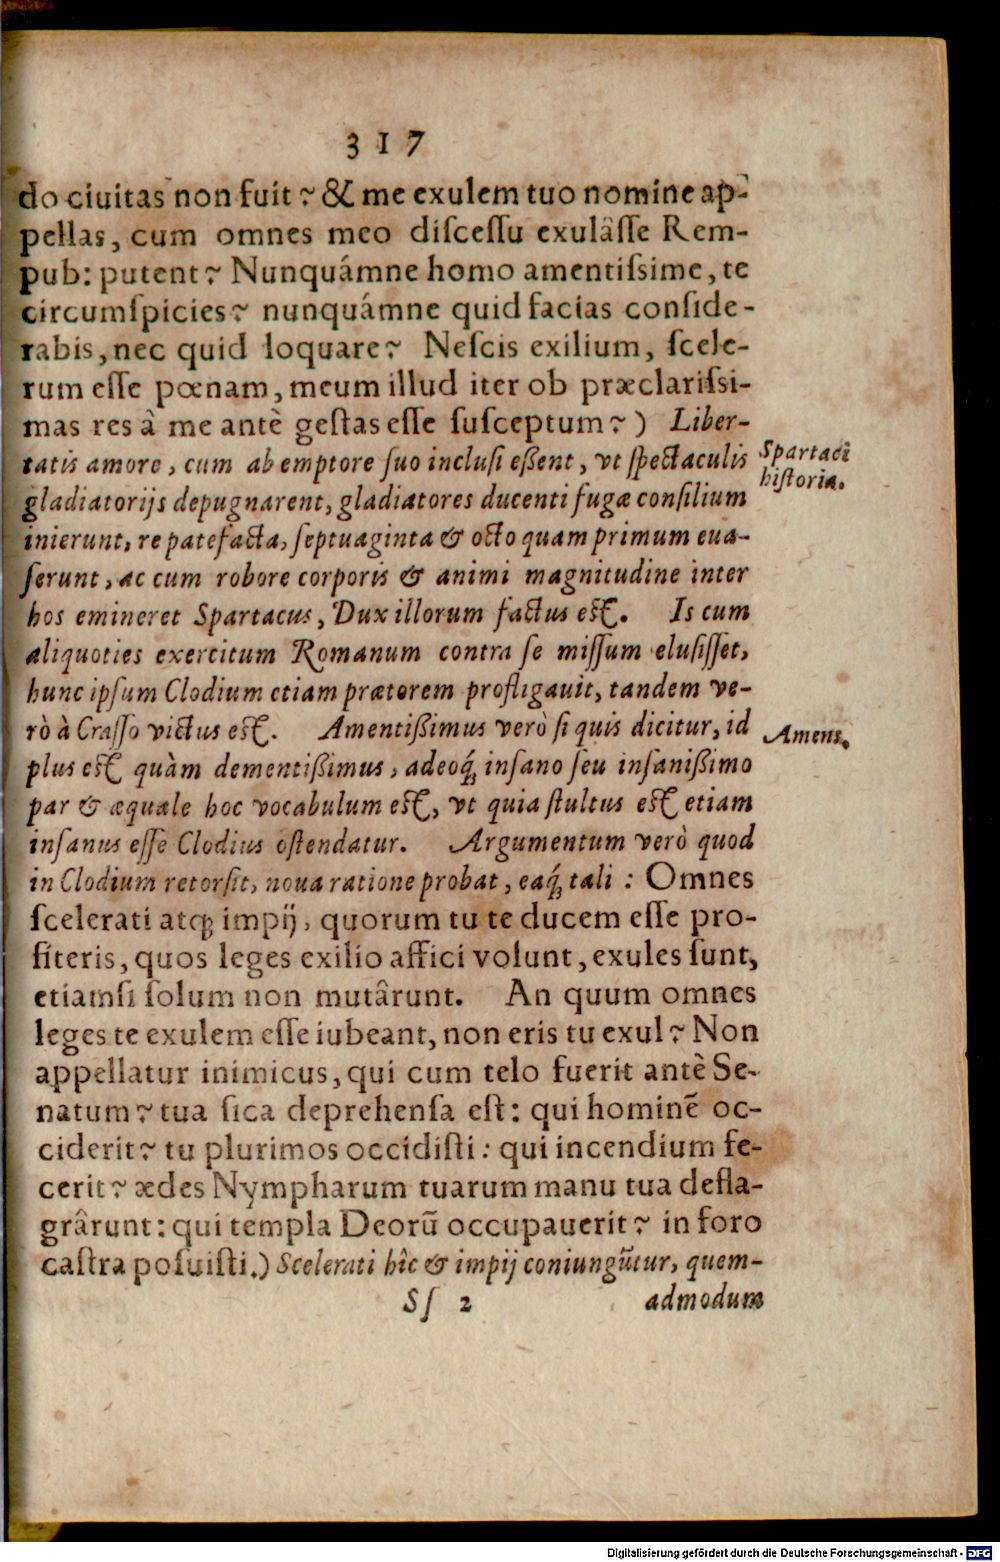 317
do ciuitas non fuit? & me exulem tuo nomine ap-
pellas, cum omnes meo diſceſſu exulâſſe Rem-
pub: putent? Nunquámne homo amentiſsime, te
circumſpicies? nunquámne quid facias conſide-
rabis, nec quid loquare? Neſcis exilium, ſcele-
rum eſſe pœnam, meum illud iter ob præclariſsi-
mas res à me antè geſtas eſſe ſuſceptum?) Liber-
tatis amore, cum ab emptore ſuo incluſi eßent, vt ſpectaculis
Spartaci
hiſtoria.
gladiatorijs depugnarent, gladiatores ducenti fugæ conſilium
inierunt, re patefacta, ſeptuaginta & octo quam primum eua-
ſerunt, ac cum robore corporis & animi magnitudine inter
hos emineret Spartacus, Dux illorum factus eſt. Is cum
aliquoties exercitum Romanum contra ſe miſſum eluſiſſet,
hunc ipſum Clodium etiam prætorem profligauit, tandem ve-
rò à Craſſo victus eſt. Amentißimus verò ſi quis dicitur, id
Amens.
plus eſt quàm dementißimus, adeoq́ꝫ inſano ſeu inſanißimo
par & æquale hoc vocabulum eſt, vt quia ſtultus eſt etiam
inſanus eſſe Clodius oſtendatur. Argumentum verò quod
in Clodium retorſit, noua ratione probat, eaq́ꝫ tali : Omnes
ſcelerati atqꝫ impij, quorum tu te ducem eſſe pro-
fiteris, quos leges exilio affici volunt, exules ſunt,
etiamſi ſolum non mutârunt. An quum omnes
leges te exulem eſſe iubeant, non eris tu exul? Non
appellatur inimicus, qui cum telo fuerit antè Se-
natum? tua ſica deprehenſa eſt: qui hominẽ oc-
ciderit? tu plurimos occidiſti: qui incendium fe-
cerit? ædes Nympharum tuarum manu tua defla-
grârunt: qui templa Deorũ occupauerit? in foro
caſtra poſuiſti.) Scelerati hîc & impij coniungũtur, quem-
Sſ 2 admodum
Digitalisierung gefördert durch die Deutsche Forschungsgemeinschaft - DFG